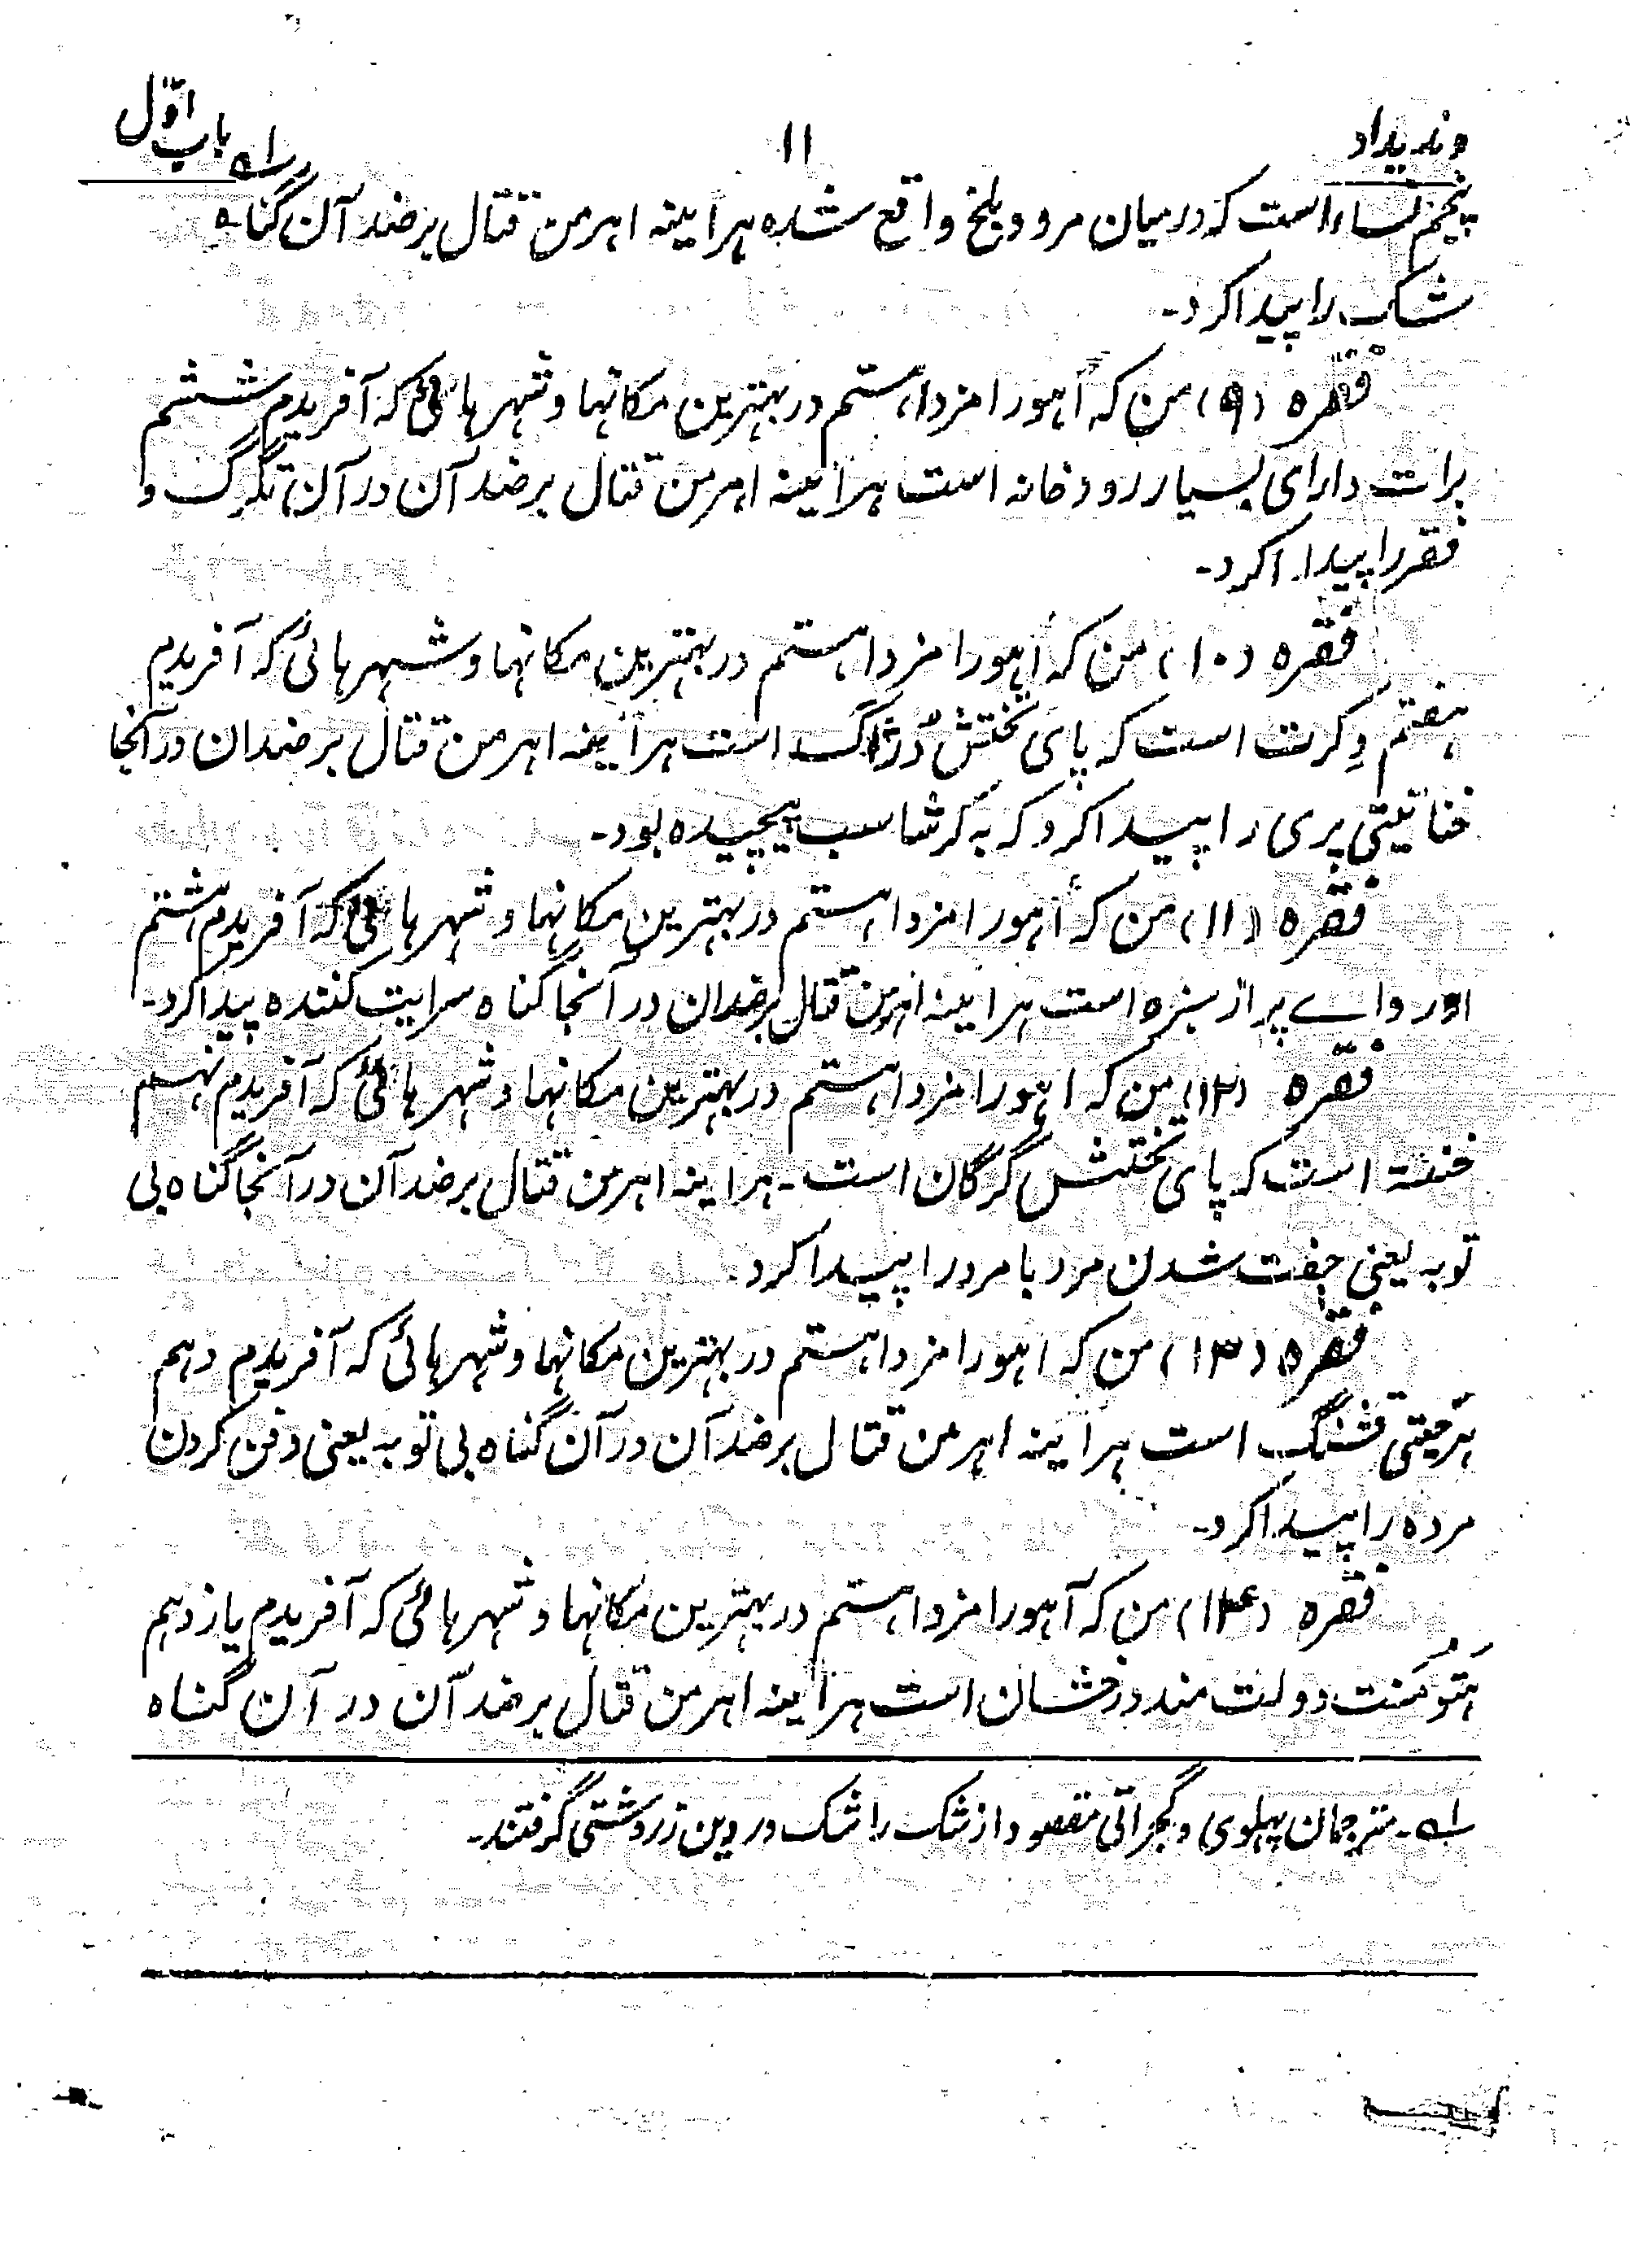 وندیداد
۱۱
باب اوّل
پنجم نساء است که درمیان مرو و بلخ واقع شده هرآیینه اهرمن قتال بر ضد آن گناه
شک را پیدا کرد-
فقره (۹) من که اهورا مزدا هستم در بهترین مکانها و شهرهائی که آفریدم ششم
برات دارای بسیار رودخانه است هرآیینه اهرمن قتال بر ضد آن در آن تگرگ و
فقر را پیدا کرد-
فقره (۱۰) من که اهورا مزدا هستم در بهترین مکانها و شهرهائی که آفریدم
هفتم وِکرت است که پای تختش دُژاک است هرآیینه اهرمن قتال بر ضد ان در آنجا
خناثیتی پری را پیدا کرد که به گرشاسب پیچیده بود-
فقره (۱۱) من که اهورا مزدا هستم در بهترین مکانها و شهرهائی که آفریدم هشتم
اور واے پر از سبزه است هرآیینه اهرمن قتال بر ضد ان در آنجا گناه سرایت کننده پیدا کرد-
فقره (۱۲) من که اهورا مزدا هستم در بهترین مکانها و شهرهائی که آفریدم نهم
خننته است که پای تختش گرگان است- هرآیینه اهرمن قتال بر ضد آن در آنجا گناه بی
توبه یعنی جفت شدن مرد با مرد را پیدا کرد-
فقره (۱۳) من که اهورا مزدا هستم در بهترین مکانها و شهرهائی که آفریدم دهم
هرحیتی قشنگ است هرآیینه اهرمن قتال بر ضد آن در آن گناه بی توبه یعنی دفن کردن
مرده را پیدا کرد-
فقره (۱۴) من که آهورا مزدا هستم در بهترین مکانها و شهرهائی که آفریدم یازدهم
هَتومَنت دولت مند درفشان است هرآیینه اهرمن قتال بر ضد آن در آن گناه
لـه- مترجمان پهلوی و گجراتی مقصود از شک را شک در دین زردشتی گرفتند-